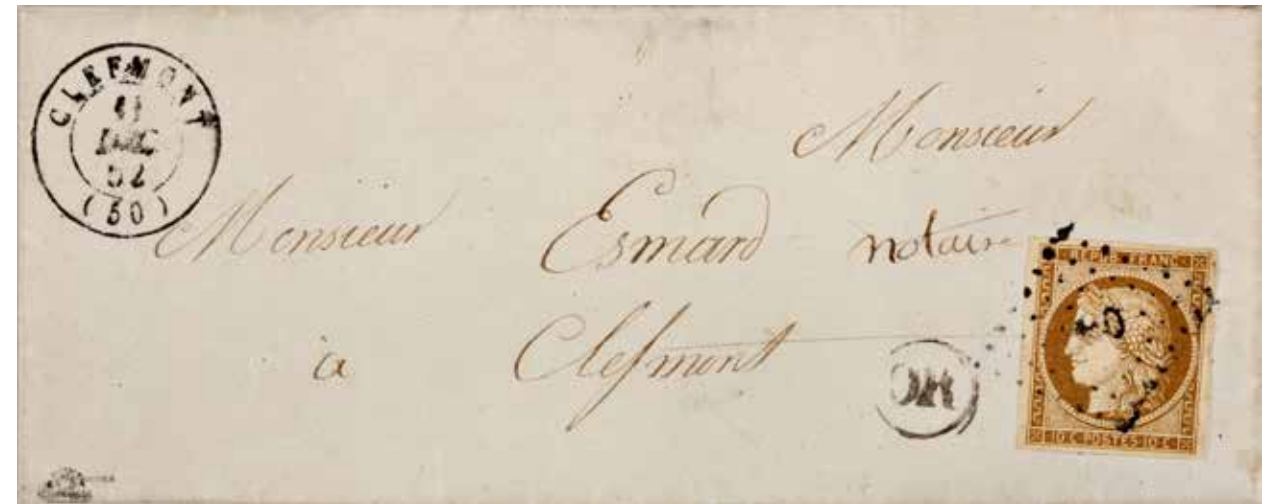 CLEFMONT
11
DEC.
52
(50)
Monsieur
Monsieur Esmard notaire
à Clefmont
OR
REPUB. FRANC.
10 C. POSTES 10 C.